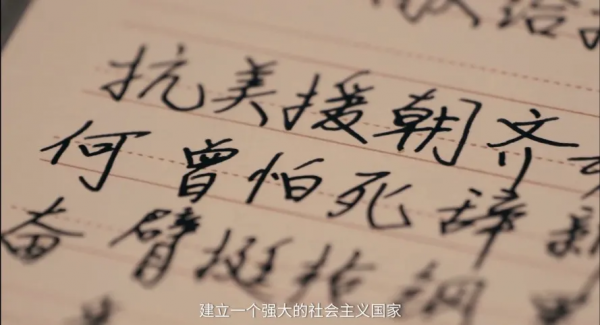 给
抗美援朝齐
何曾怕死辞新
奋臂挺枪钢
建立一个强大的社会主义国家